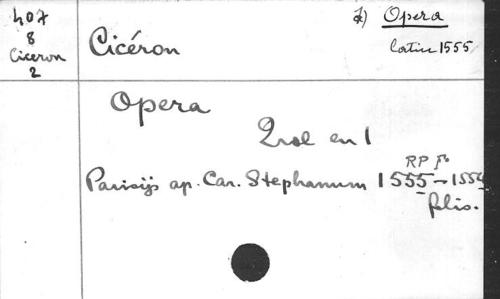 407
8
Ciceron
2
Cicéron
Opera
latin 1555
Opera
2 vol en 1
RP Fo
Parisijs ap. Car. Stephanum 1555-1554
folis.